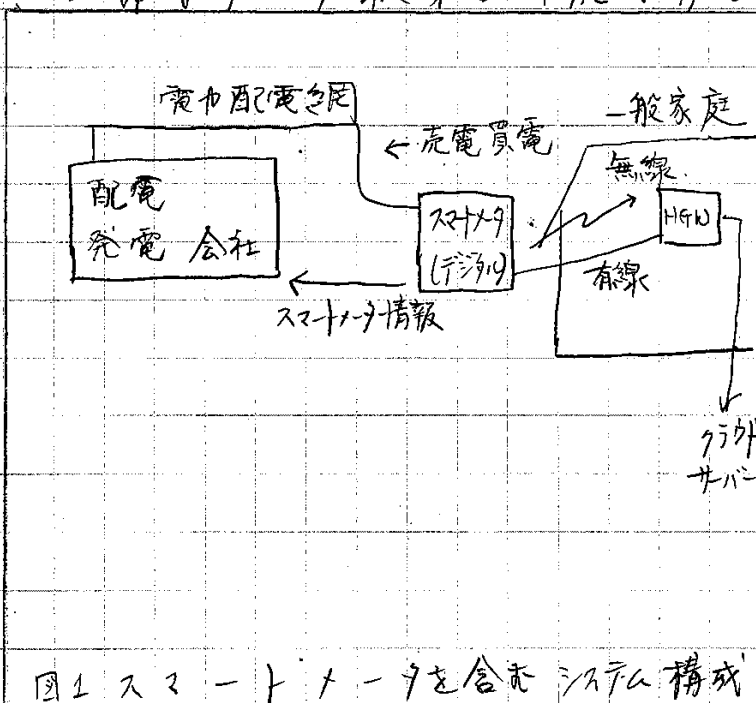 電力配電網
一般家庭
← 売電買電
無線
配電
発電 会社
スマートメータ
(デジタル)
HGW
有線
スマートメータ情報
クラウド
サーバー
図1 スマートメータを含む システム構成